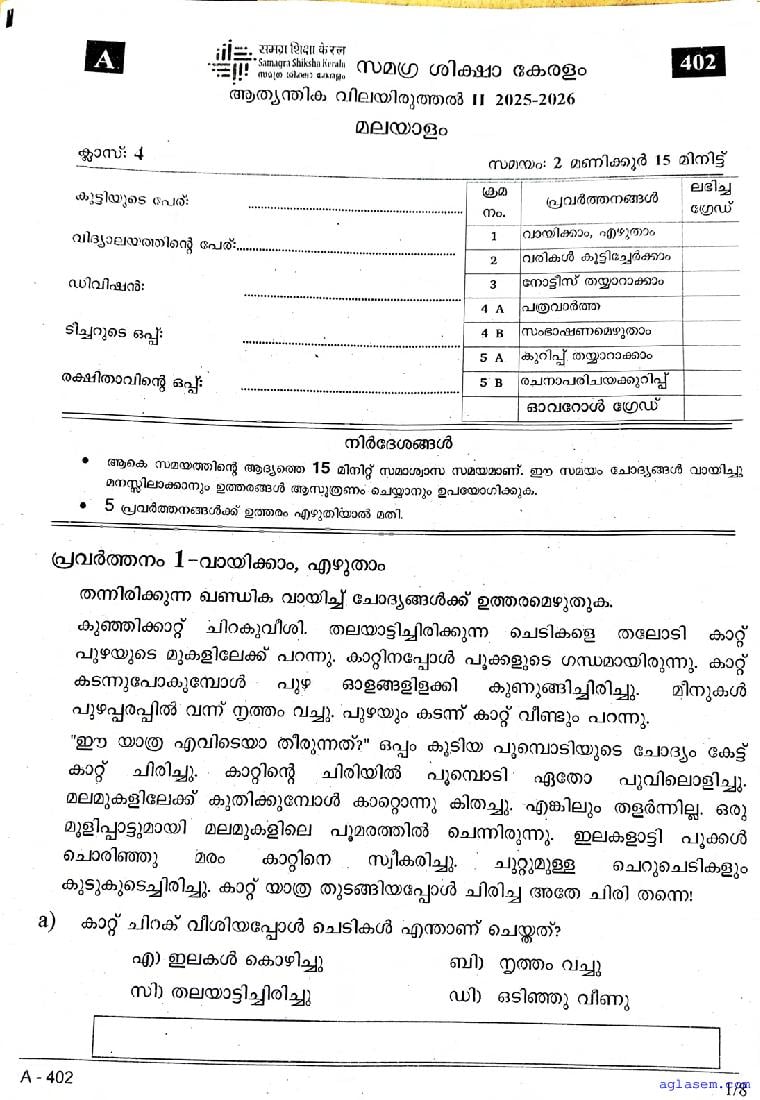 A
समग्र शिक्षा केरल
Samagra Shiksha Kerala
സമഗ്ര ശിക്ഷാ കേരളം
സമഗ്ര ശിക്ഷാ കേരളം
402
ആത്യന്തിക വിലയിരുത്തൽ II 2025-2026
മലയാളം
ക്ലാസ്: 4
സമയം: 2 മണിക്കൂർ 15 മിനിട്ട്
കുട്ടിയുടെ പേര്:
വിദ്യാലയത്തിന്റെ പേര്:
ഡിവിഷൻ:
ടീച്ചറുടെ ഒപ്പ്:
രക്ഷിതാവിന്റെ ഒപ്പ്:
ക്രമ നം. പ്രവർത്തനങ്ങൾ ലഭിച്ച ഗ്രേഡ്
1 വായിക്കാം, എഴുതാം
2 വരികൾ കൂട്ടിച്ചേർക്കാം
3 നോട്ടീസ് തയ്യാറാക്കാം
4 A പത്രവാർത്ത
4 B സംഭാഷണമെഴുതാം
5 A കുറിപ്പ് തയ്യാറാക്കാം
5 B രചനാപരിചയക്കുറിപ്പ്
ഓവറോൾ ഗ്രേഡ്
നിർദേശങ്ങൾ
• ആകെ സമയത്തിന്റെ ആദ്യത്തെ 15 മിനിറ്റ് സമാശ്വാസ സമയമാണ്. ഈ സമയം ചോദ്യങ്ങൾ വായിച്ചു
മനസ്സിലാക്കാനും ഉത്തരങ്ങൾ ആസൂത്രണം ചെയ്യാനും ഉപയോഗിക്കുക.
• 5 പ്രവർത്തനങ്ങൾക്ക് ഉത്തരം എഴുതിയാൽ മതി.
പ്രവർത്തനം 1-വായിക്കാം, എഴുതാം
തന്നിരിക്കുന്ന ഖണ്ഡിക വായിച്ച് ചോദ്യങ്ങൾക്ക് ഉത്തരമെഴുതുക.
കുഞ്ഞിക്കാറ്റ് ചിറകുവീശി. തലയാട്ടിച്ചിരിക്കുന്ന ചെടികളെ തലോടി കാറ്റ്
പുഴയുടെ മുകളിലേക്ക് പറന്നു. കാറ്റിനപ്പോൾ പൂക്കളുടെ ഗന്ധമായിരുന്നു. കാറ്റ്
കടന്നുപോകുമ്പോൾ പുഴ ഓളങ്ങളിളക്കി കുണുങ്ങിച്ചിരിച്ചു. മീനുകൾ
പുഴപ്പരപ്പിൽ വന്ന് നൃത്തം വച്ചു. പുഴയും കടന്ന് കാറ്റ് വീണ്ടും പറന്നു.
"ഈ യാത്ര എവിടെയാ തീരുന്നത്?" ഒപ്പം കൂടിയ പൂമ്പൊടിയുടെ ചോദ്യം കേട്ട്
കാറ്റ് ചിരിച്ചു. കാറ്റിന്റെ ചിരിയിൽ പൂമ്പൊടി ഏതോ പൂവിലൊളിച്ചു.
മലമുകളിലേക്ക് കുതിക്കുമ്പോൾ കാറ്റൊന്നു കിതച്ചു. എങ്കിലും തളർന്നില്ല. ഒരു
മൂളിപ്പാട്ടുമായി മലമുകളിലെ പൂമരത്തിൽ ചെന്നിരുന്നു. ഇലകളാട്ടി പൂക്കൾ
ചൊരിഞ്ഞു മരം കാറ്റിനെ സ്വീകരിച്ചു. ചുറ്റുമുള്ള ചെറുചെടികളും
കുടുകുടെച്ചിരിച്ചു. കാറ്റ് യാത്ര തുടങ്ങിയപ്പോൾ ചിരിച്ച അതേ ചിരി തന്നെ!
a) കാറ്റ് ചിറക് വീശിയപ്പോൾ ചെടികൾ എന്താണ് ചെയ്തത്?
എ) ഇലകൾ കൊഴിച്ചു ബി) നൃത്തം വച്ചു
സി) തലയാട്ടിച്ചിരിച്ചു ഡി) ഒടിഞ്ഞു വീണു
A - 402
aglasem.com
1/8